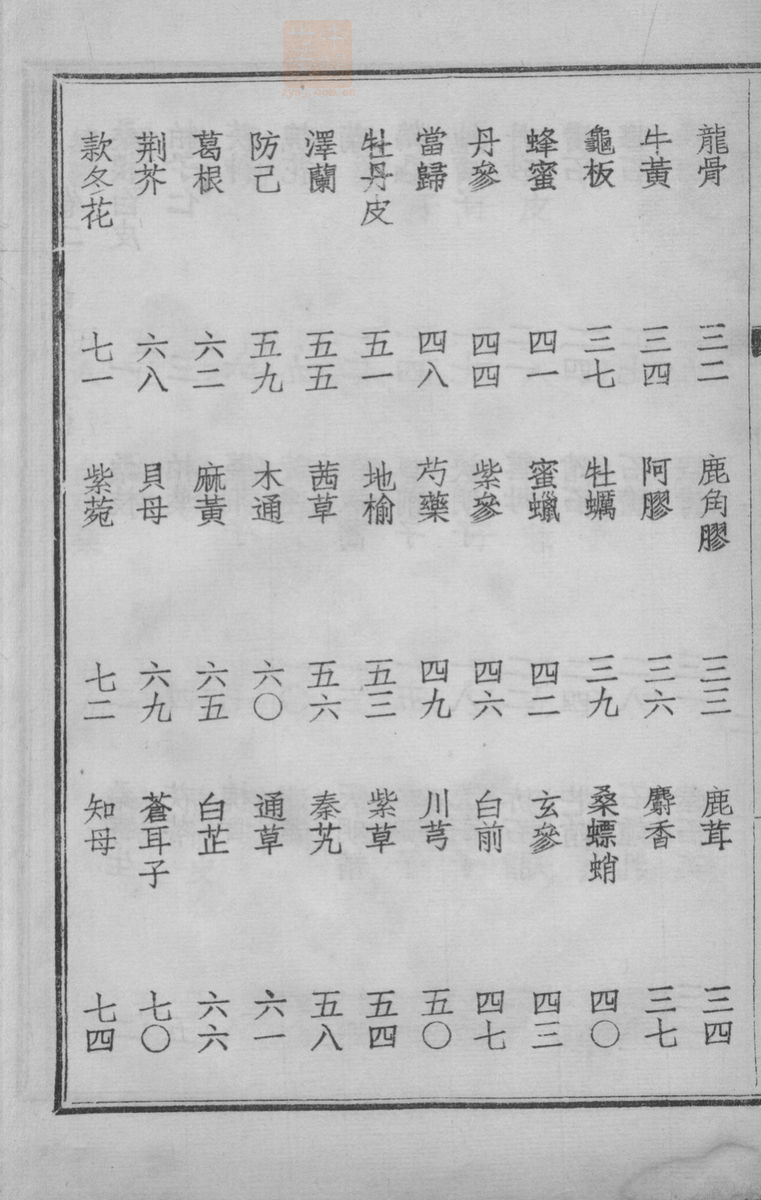 龍骨 三二 鹿角膠 三三 鹿茸 三四
牛黃 三四 阿膠 三六 麝香 三七
龜板 三七 牡蠣 三九 桑螵蛸 四〇
蜂蜜 四一 蜜蠟 四二 玄參 四三
丹參 四四 紫參 四六 白前 四七
當歸 四八 芍藥 四九 川芎 五〇
牡丹皮 五一 地榆 五三 紫草 五四
澤蘭 五五 茜草 五六 秦艽 五八
防己 五九 木通 六〇 通草 六一
葛根 六二 麻黃 六五 白芷 六六
荆芥 六八 貝母 六九 蒼耳子 七〇
款冬花 七一 紫菀 七二 知母 七四